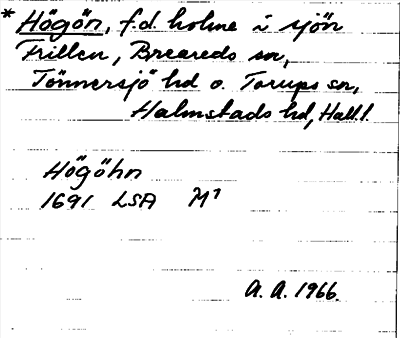 * Högön, f.d. holme i sjön
Frillen, Breareds sn,
Tönnersjö hd o. Torups sn,
Halmstads hd, Hall.
Högöhn
1691 LSA M¹
A. A. 1966.